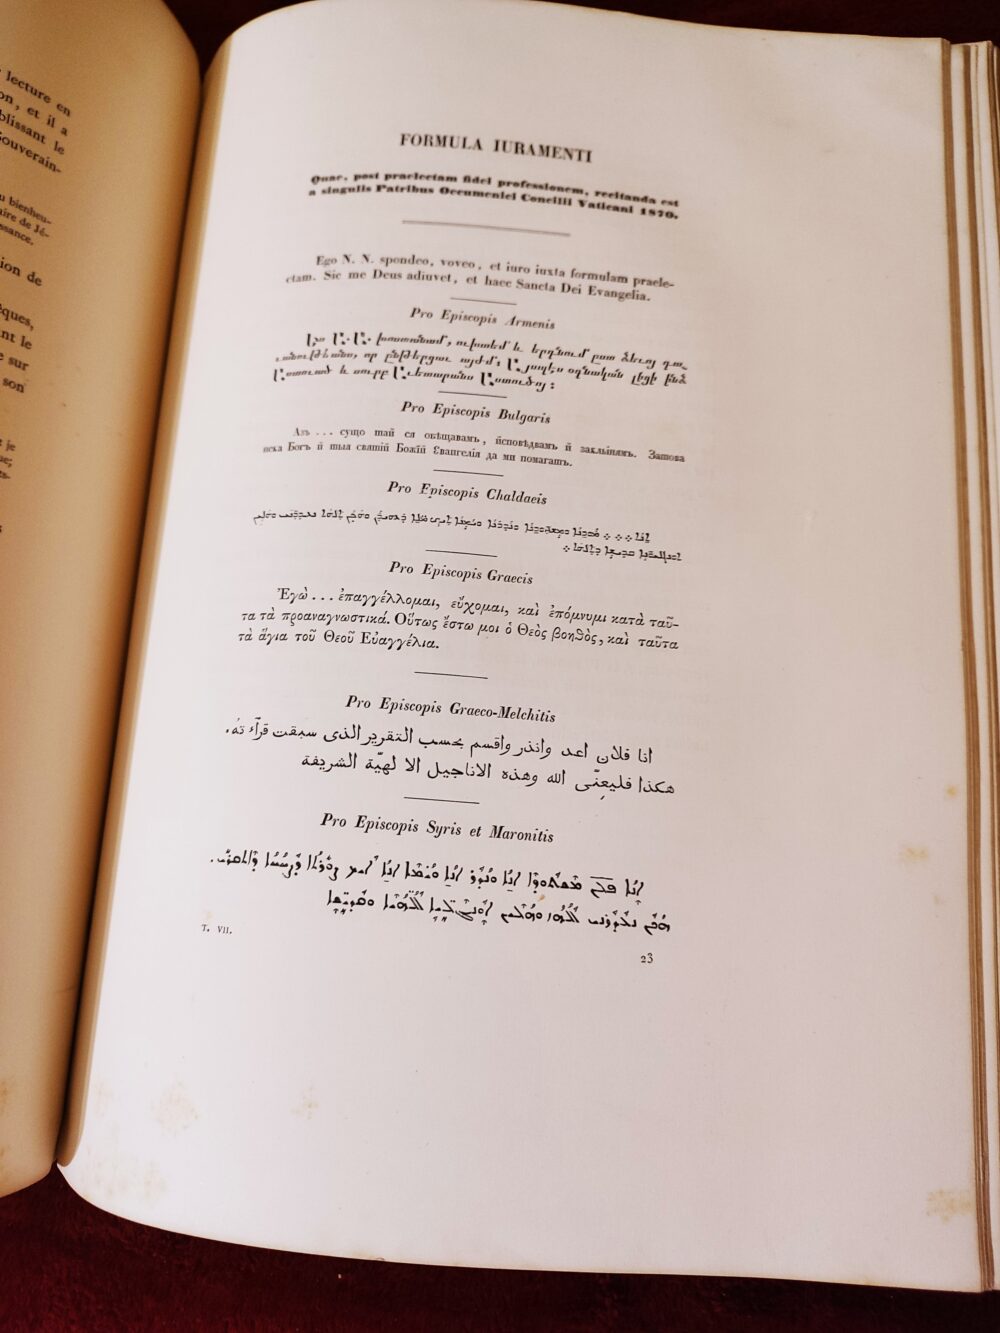 lecture en
on, et il a
blissant le
Souverain-
u bienheu-
aire de Jé-
ssance.
ion de
êques,
nt le
e sur
son
t je
que;
FORMULA IURAMENTI
Quae, post praelectam fidei professionem, recitanda est
a singulis Patribus Oecumenici Concilii Vaticani 1870.
Ego N. N. spondeo, voveo, et iuro iuxta formulam praele-
ctam. Sic me Deus adiuvet, et haec Sancta Dei Evangelia.
Pro Episcopis Armenis
Ես Ա․Ա․ խոստանամ, ուխտեմ և երդնում ըստ ձեւոյ դա_
ւանութեանս, որ ընթերցաւ այժմ։ Այսպէս օգնական լիցի ինձ
Աստուած և սուրբ Աւետարանս Աստուծոյ։
Pro Episcopis Bulgaris
Азъ ... сущо тай ся обѣщавамъ, исповѣдвамъ й заклынямъ. Затова
нека Богъ й тыя святій Божій Євангелія да ми помагатъ.
Pro Episcopis Chaldaeis
Pro Episcopis Graecis
Ἐγὼ ... ἐπαγγέλλομαι, εὔχομαι, καὶ ἐπόμνυμι κατὰ ταῦ-
τα τὰ προαναγνωστικά. Οὕτως ἔστω μοι ὁ Θεὸς βοηθὸς, καὶ ταῦτα
τὰ ἅγια τοῦ Θεοῦ Εὐαγγέλια.
Pro Episcopis Graeco-Melchitis
انا فلان اعد وانذر واقسم بحسب التقرير الذى سبقت قرآء ته.
هكذا فليعِنّى الله وهذه الاناجيل الا لهيّة الشريفة
Pro Episcopis Syris et Maronitis
T. VII.
23